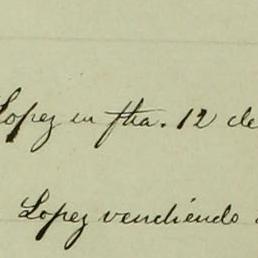 Lopez en fha. 12 de
Lopez vendiendo